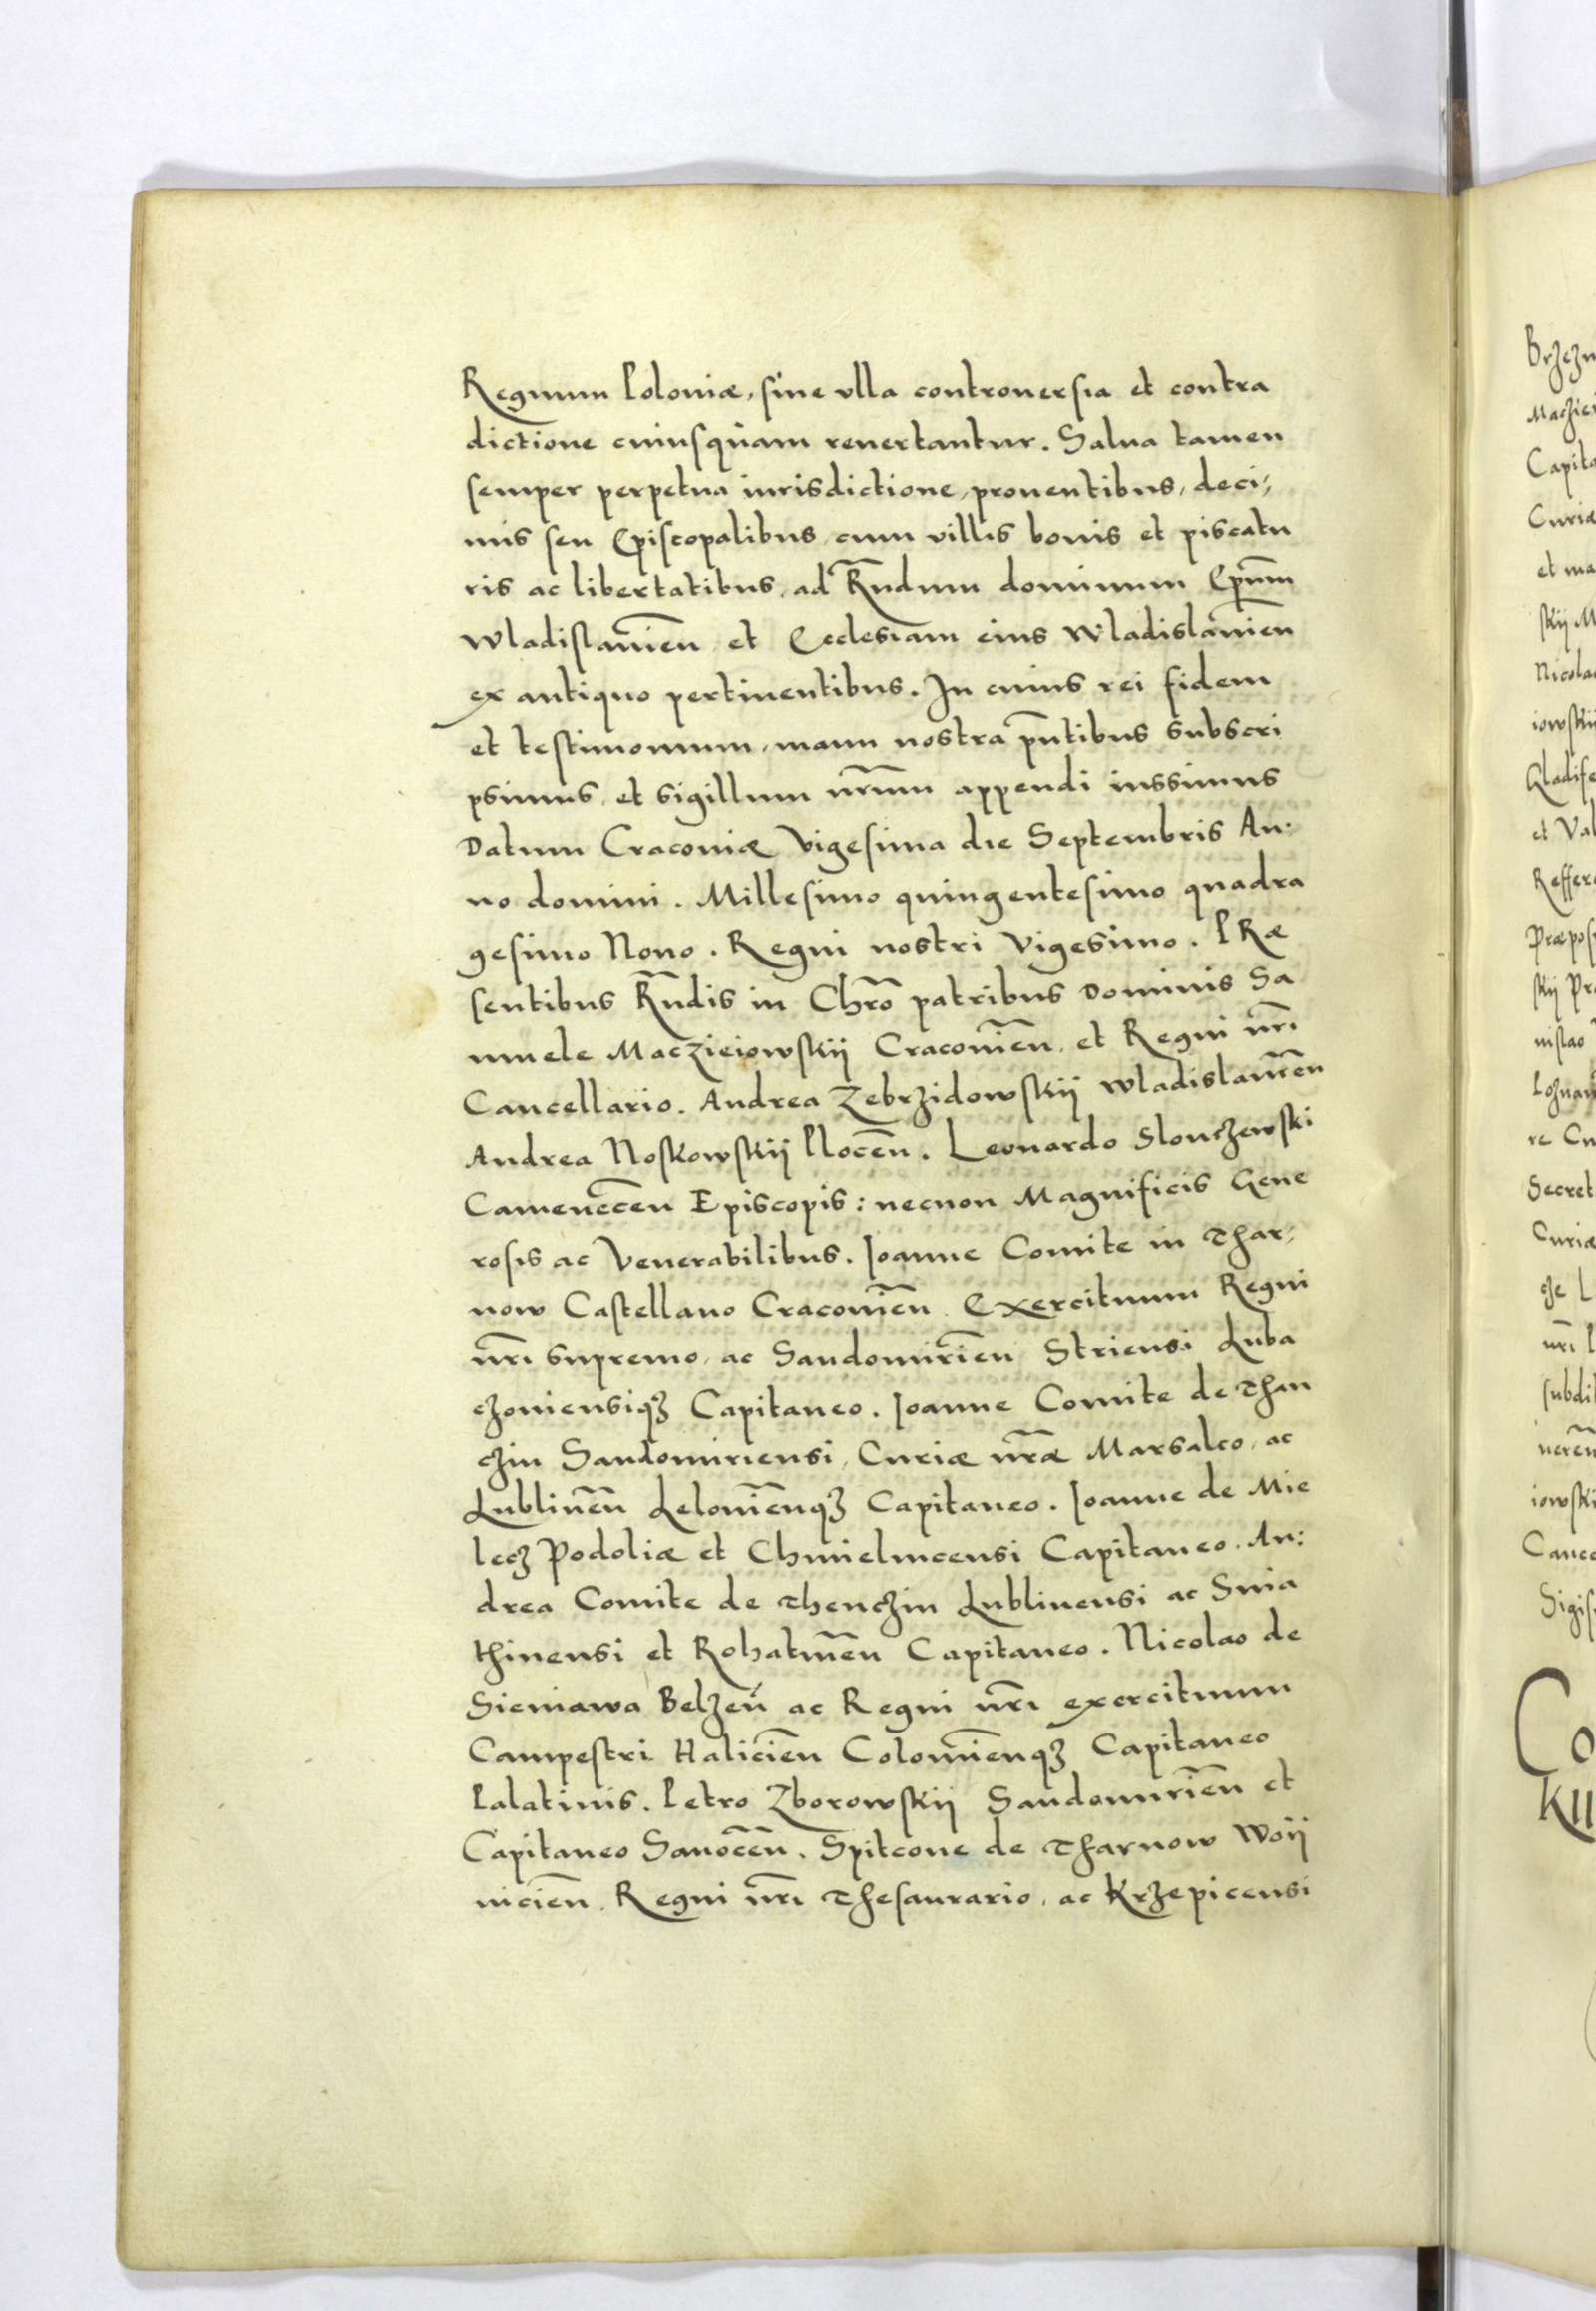 Regnum Poloniæ, sine vlla controuersia et contra
dictione cuiusquam reuertantur. Salua tamen
semper perpetua iurisdictione, prouentibus, deci,
mis seu Episcopalibus, cum villis bonis et piscatu
ris ac libertatibus, ad R̃ndum dominum Ep̃um
Wladislauien̄ et Ecclesiam eius Wladislauien̄
ex antiquo pertinentibus. In cuius rei fidem
et testimonium, manu nostra p̃ntibus subscri
psimus, et sigillum nr̃um appendi iussimus
Datum Cracouiæ Vigesima die Septembris An:
no domini. Millesimo quingentesimo quadra
gesimo Nono. Regni nostri Vigesimo. PRæ
sentibus R̃ndis in Chr̃o patribus Dominis Sa
muele Maczieiowskij Cracouien̄, et Regni nr̃i
Cancellario. Andrea Zebrzidowskij Wladislauien̄
Andrea Noskowskij Plocen̄. Leonardo Slonczewski
Camenecen̄ Episcopis: necnon Magnificis Gene
rosis ac Venerabilibus. Ioanne Comite in Thar,
now Castellano Cracouien̄ Exercituum Regni
nr̃i supremo, ac Sandomirien̄ Striensi Luba
czouiensiqȝ Capitaneo. Ioanne Comite de Than
czin Sandomiriensi, Curiæ nr̃æ Marsalco, ac
Lublinen̄ Lelouien̄qȝ Capitaneo. Ioanne de Mie
lecz Podoliæ et Chmielnicensi Capitaneo. An:
drea Comite de Thenczin Lublinensi ac Snia
thinensi et Rohatinen̄ Capitaneo. Nicolao de
Sieniawa Belzen̄ ac Regni nr̃i exercituum
Campestri Halicien̄ Colomien̄qȝ Capitaneo
Palatinis. Petro Zborowskij Sandomirien̄ et
Capitaneo Sanocen̄. Spitcone de Tharnow Woij
nicien̄. Regni nr̃i Thesaurario, ac Krzepicensi